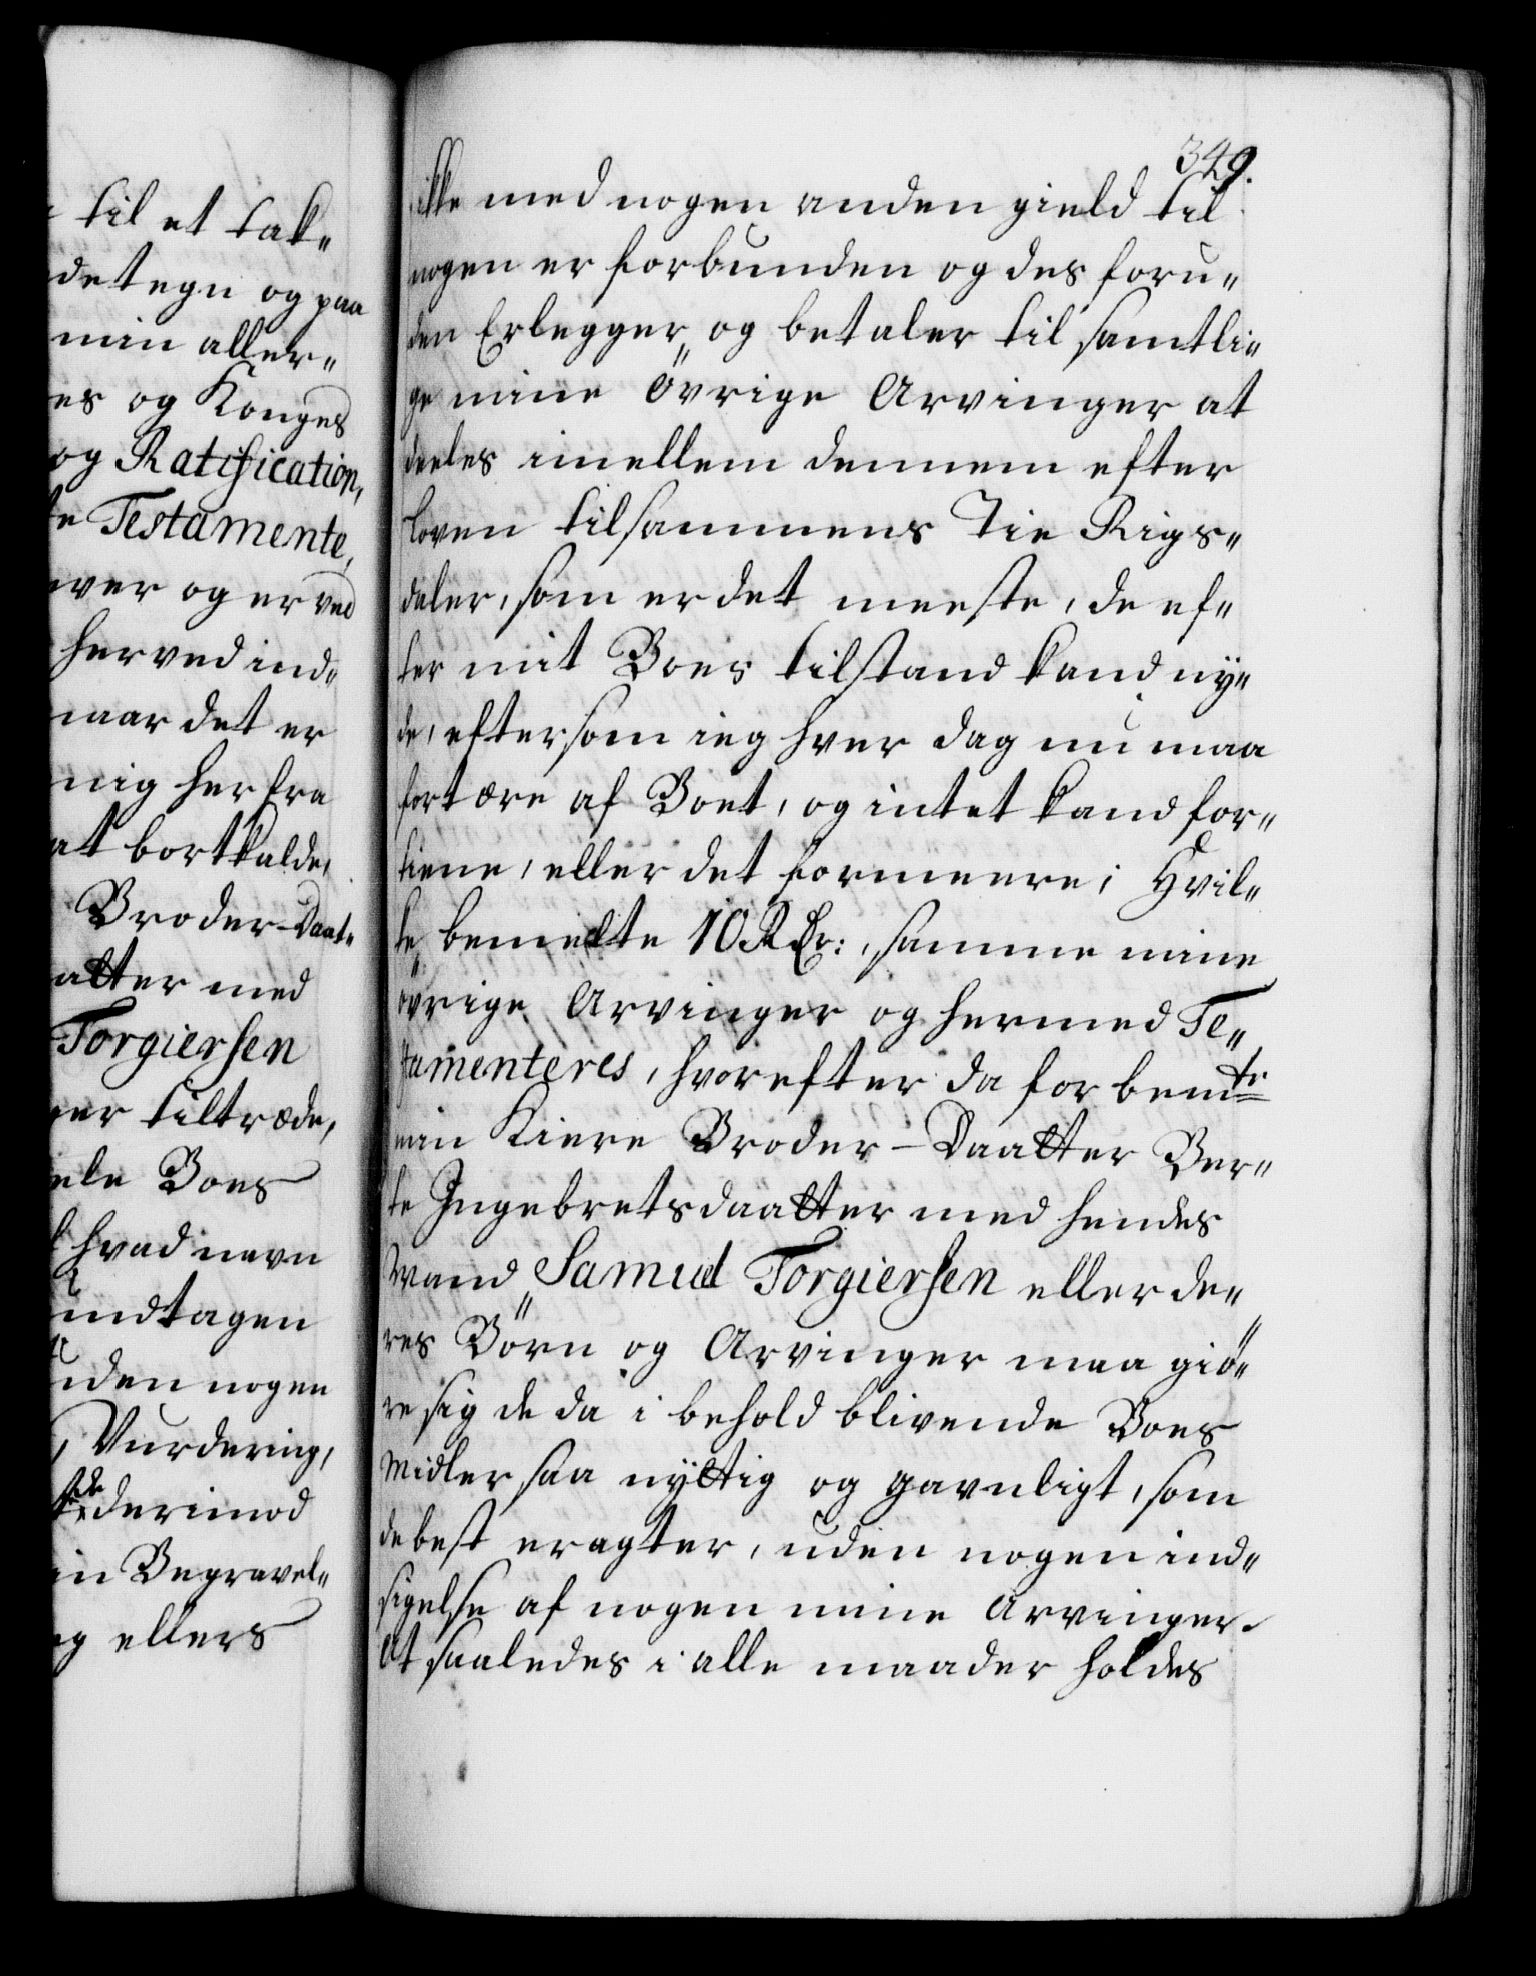 til et tak„
detegn og paa
min aller„
es og Konges
og Ratification,
te Testamente,
wer og er ved
herved ind„
naar det er
mig herfra
at bortkalde,
Broder-Daat„
atter med
Torgiersen
er tiltræde,
ele Boes
hvad navn
undtagen
uden nogen
, Vurdering,
derimod
in Begravel„
og ellers
349.
ikke med nogen anden gield til
nogen er forbunden og des foru„
den Erlegger og betaler til samtli„
ge mine övrige Arvinger at
deeles imellem dennem efter
Loven tilsammens Tie Rigs„
daler, som er det meeste, de ef„
ter mit Boes tilstand kand ny„
de, eftersom ieg hver dag nu maa
fortære af Boet, og intet kand for„
tiene, eller det formeere; Hvil„
ke bemelte 10 Rdr:, samme mine
övrige Arvinger og hermed Te„
stamenteres, hvorefter da forbemte
min Kiere Broder-Daatter Ber„
te Ingebretsdaatter med hendes
Mand Samuel Torgiersen eller de„
res Börn og Arvinger maa giö„
re sig de da i behold blivende Boes
Midler saa nyttig og gavnligt, som
de best eragter, uden nogen ind„
sigelse af nogen mine Arvinger.
At saaledes i alle maader holdes